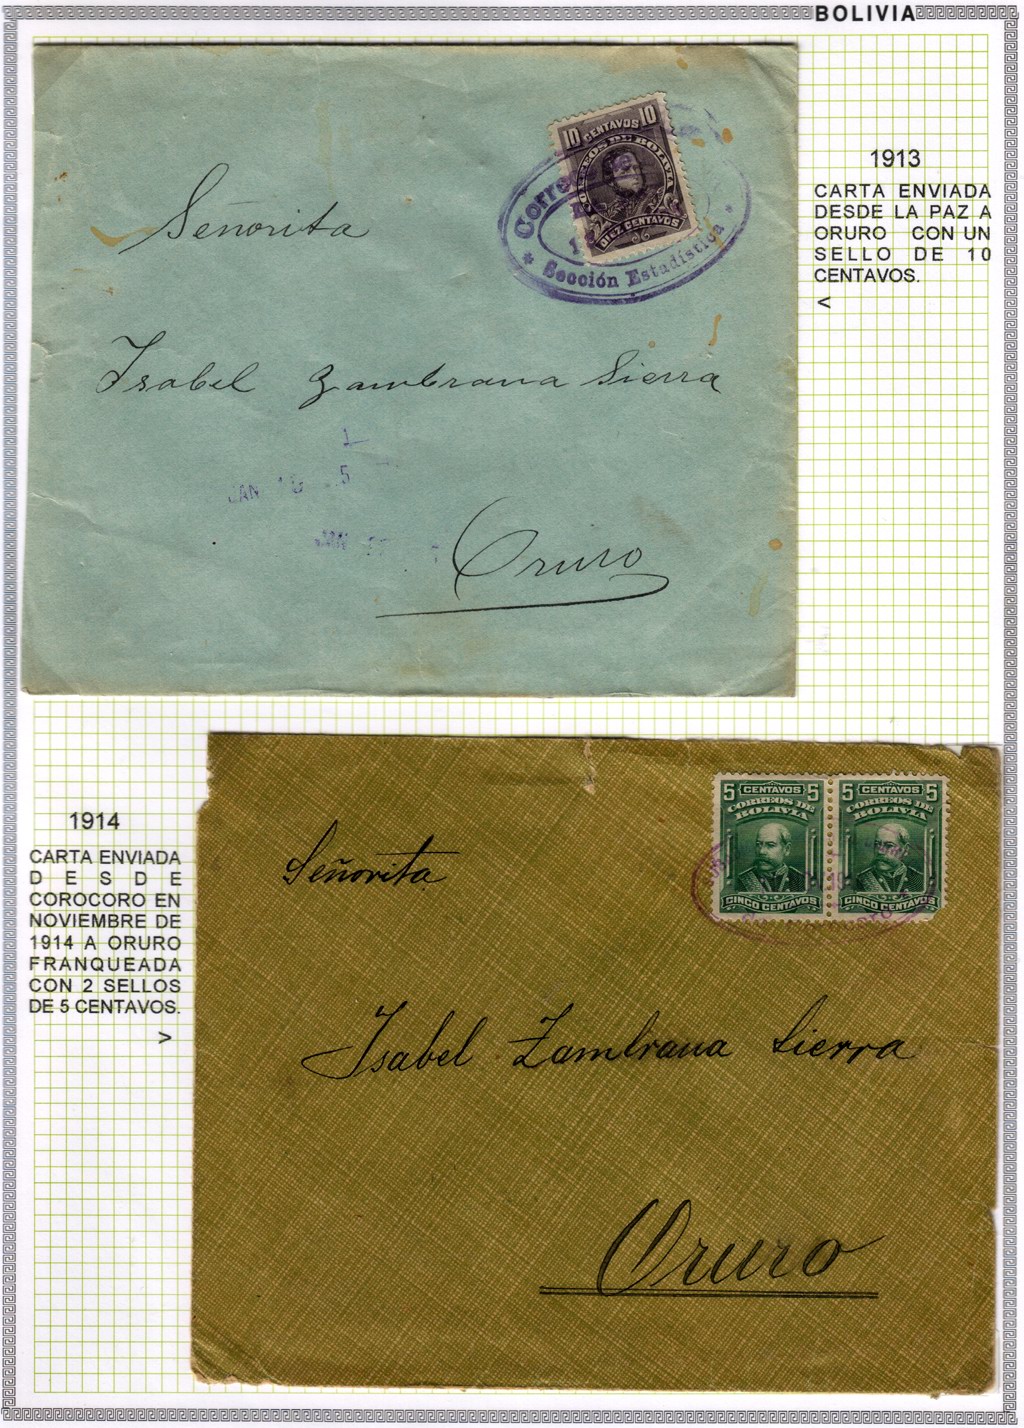 BOLIVIA
10 CENTAVOS 10
CORREOS DE BOLIVIA
DIEZ CENTAVOS
Corre
* Sección Estadística *
Señorita
Isabel Zambrana Sierra
JAN
5
JAN
Oruro
1913
CARTA ENVIADA
DESDE LA PAZ A
ORURO CON UN
SELLO DE 10
CENTAVOS.
<
1914
CARTA ENVIADA
DESDE
COROCORO EN
NOVIEMBRE DE
1914 A ORURO
FRANQUEADA
CON 2 SELLOS
DE 5 CENTAVOS.
>
5 CENTAVOS 5
CORREOS DE
BOLIVIA
CINCO CENTAVOS
5 CENTAVOS 5
CORREOS DE
BOLIVIA
CINCO CENTAVOS
Señorita
Isabel Zambrana Sierra
Oruro